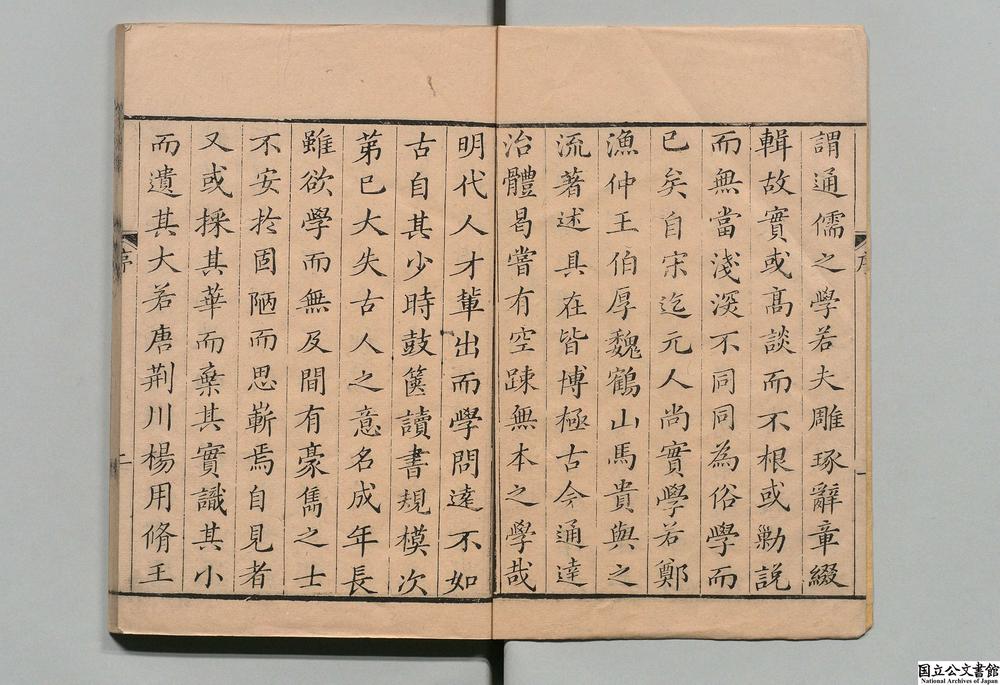 謂通儒之學若夫雕琢辭章綴
輯故實或高談而不根或勦說
而無當淺深不同同為俗學而
已矣自宋迄元人尚實學若鄭
漁仲王伯厚魏鶴山馬貴與之
流著述具在皆博極古今通達
治體曷嘗有空踈無本之學哉
明代人才輩出而學問遠不如
古自其少時鼓篋讀書規模次
苐已大失古人之意名成年長
雖欲學而無及間有豪雋之士
不安於固陋而思嶄焉自見者
又或採其華而棄其實識其小
而遺其大若唐荆川楊用脩王
序
一
序
二
国立公文書館
National Archives of Japan